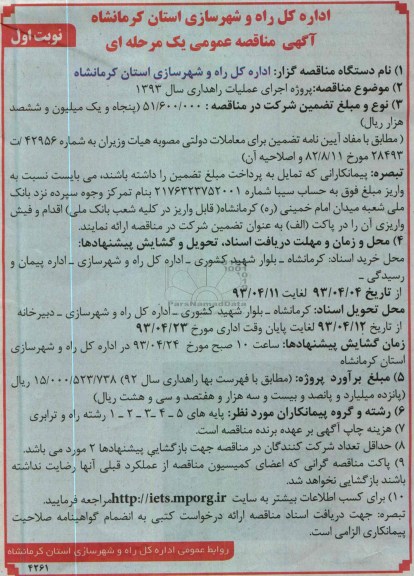 اداره کل راه و شهرسازی استان کرمانشاه
آگهی مناقصه عمومی یک مرحله ای
نوبت اول
۱) نام دستگاه مناقصه گزار: اداره کل راه و شهرسازی استان کرمانشاه
۲) موضوع مناقصه:پروژه اجرای عملیات راهداری سال ۱۳۹۳
۳) نوع و مبلغ تضمین شرکت در مناقصه : ۵۱/۶۰۰/۰۰۰ (پنجاه و یک میلیون و ششصد
هزار ریال)
(مطابق با مفاد آیین نامه تضمین برای معاملات دولتی مصوبه هیات وزیران به شماره ۴۲۹۵۶/ت
۲۸۴۹۳ مورخ ۸۲/۸/۱۱ و اصلاحیه آن)
تبصره: پیمانکارانی که تمایل به پرداخت مبلغ تضمین را داشته باشند، می بایست نسبت به
واریز مبلغ فوق به حساب سیبا شماره ۲۱۷۶۴۲۳۷۵۲۰۰۱ بنام تمرکز وجوه سپرده نزد بانک
ملی شعبه میدان امام خمینی (ره) کرمانشاه( قابل واریز در کلیه شعب بانک ملی) اقدام و فیش
واریزی آن را در پاکت (الف) به عنوان تضمین شرکت در مناقصه ارائه نمایند.
۴) محل و زمان و مهلت دریافت اسناد، تحویل و گشایش پیشنهادها:
محل خرید اسناد: کرمانشاه ـ بلوار شهید کشوری ـ اداره کل راه و شهرسازی ـ اداره پیمان و
رسیدگی ـ
از تاریخ ۹۳/۰۴/۰۴ لغایت ۹۳/۰۴/۱۱
محل تحویل اسناد: کرمانشاه ـ بلوار شهید کشوری ـ اداره کل راه و شهرسازی ـ دبیرخانه
از تاریخ ۹۳/۰۴/۱۲ لغایت پایان وقت اداری مورخ ۹۳/۰۴/۲۳
زمان گشایش پیشنهادها: ساعت ۱۰ صبح مورخ ۹۳/۰۴/۲۴ در اداره کل راه و شهرسازی
استان کرمانشاه
۵) مبلغ برآورد پروژه: (مطابق با فهرست بها راهداری سال ۹۲) ۱۵/۰۰۰/۵۲۳/۷۳۸ ریال
(پانزده میلیارد و پانصد و بیست و سه هزار و هفتصد و سی و هشت ریال)
۶) رشته و گروه پیمانکاران مورد نظر: پایه های ۵ ـ ۴ ـ ۳ ـ ۲ ـ ۱ رشته راه و ترابری
۷) هزینه چاپ آگهی بر عهده برنده مناقصه است.
۸) حداقل تعداد شرکت کنندگان در مناقصه جهت بازگشایی پیشنهادها ۲ مورد می باشد.
۹) پاکت مناقصه گرانی که اعضای کمیسیون مناقصه از عملکرد قبلی آنها رضایت نداشته
باشند بازگشایی نخواهد شد.
۱۰) برای کسب اطلاعات بیشتر به سایت http://iets.mporg.ir مراجعه فرمایید.
تبصره: جهت دریافت اسناد مناقصه ارائه درخواست کتبی به انضمام گواهینامه صلاحیت
پیمانکاری الزامی است.
روابط عمومی اداره کل راه و شهرسازی استان کرمانشاه
۴۲۶۱
ParsNamadData